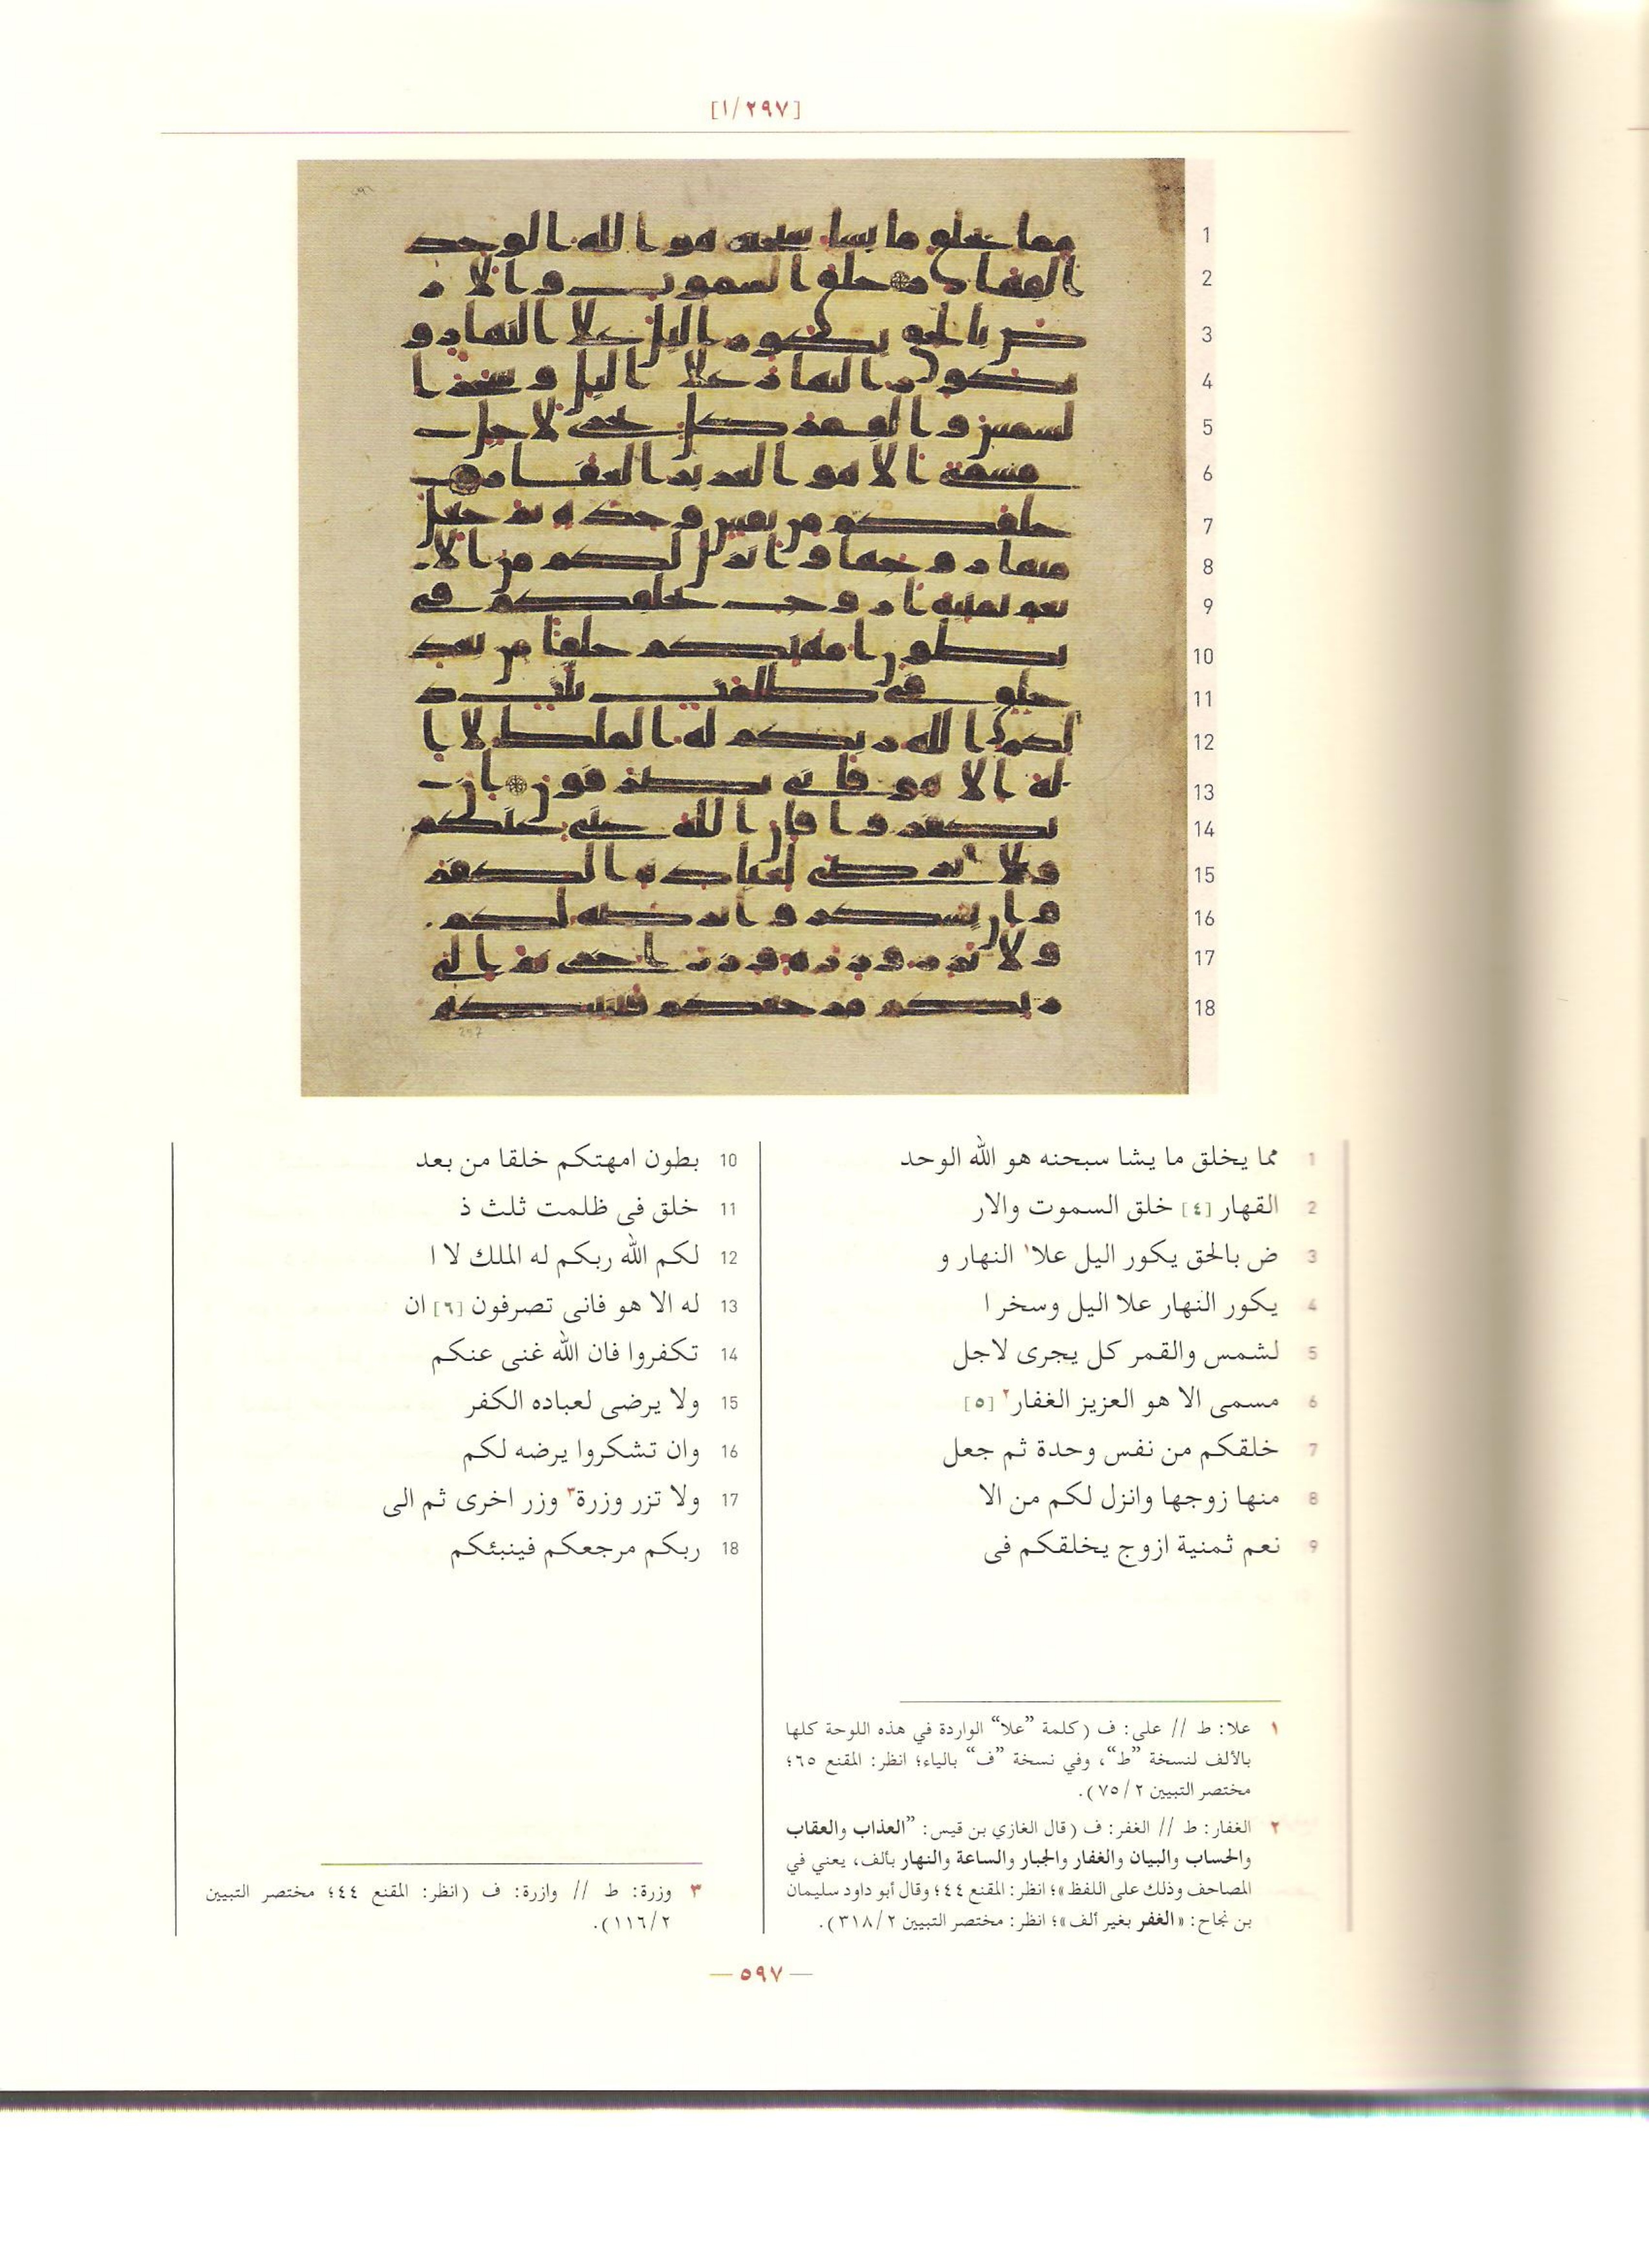 [١/٢٩٧]
1 مما يخلق ما يشا سبحنه هو الله الوحد
2 القهار [٤] خلق السموت والار
3 ض بالحق يكور اليل علا١ النهار و
4 يكور النهار علا اليل وسخر ا
5 لشمس والقمر كل يجرى لاجل
6 مسمى الا هو العزيز الغفار٢ [٥]
7 خلقكم من نفس وحدة ثم جعل
8 منها زوجها وانزل لكم من الا
9 نعم ثمنية ازوج يخلقكم فى
10 بطون امهتكم خلقا من بعد
11 خلق فى ظلمت ثلث ذ
12 لكم الله ربكم له الملك لا ا
13 له الا هو فانى تصرفون [٦] ان
14 تكفروا فان الله غنى عنكم
15 ولا يرضى لعباده الكفر
16 وان تشكروا يرضه لكم
17 ولا تزر وزرة٣ وزر اخرى ثم الى
18 ربكم مرجعكم فينبئكم
١ علا: ط // على: ف (كلمة ”علا“ الواردة في هذه اللوحة كلها
بالألف لنسخة ”ط“، وفي نسخة ”ف“ بالياء؛ انظر: المقنع ٦٥؛
مختصر التبيين ٧٥/٢).
٢ الغفار: ط // الغفر: ف (قال الغازي بن قيس: ”العذاب والعقاب
والحساب والبيان والغفار والجبار والساعة والنهار بألف، يعني في
المصاحف وذلك على اللفظ»؛ انظر: المقنع ٤٤؛ وقال أبو داود سليمان
بن نجاح: «الغفر بغير ألف»؛ انظر: مختصر التبيين ٣١٨/٢).
٣ وزرة: ط // وازرة: ف (انظر: المقنع ٤٤؛ مختصر التبيين
١١٦/٢).
— ٥٩٧ —